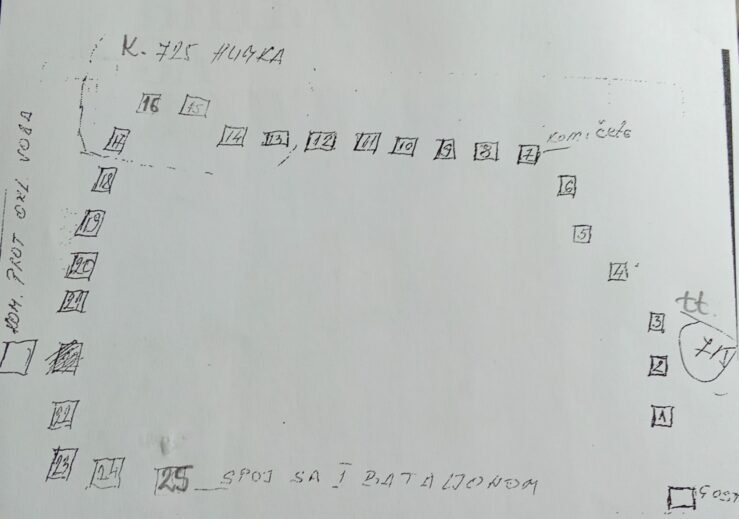 K. 725 HUČKA
16 15
17 14 13 12 11 10 9 8 7 KOM. ČETE
18 6
19 5
20 4
21 3
2
22 1
23 24 25 SPOJ SA I BATALJONOM
KOM. PROT OKL. VODA
tt.